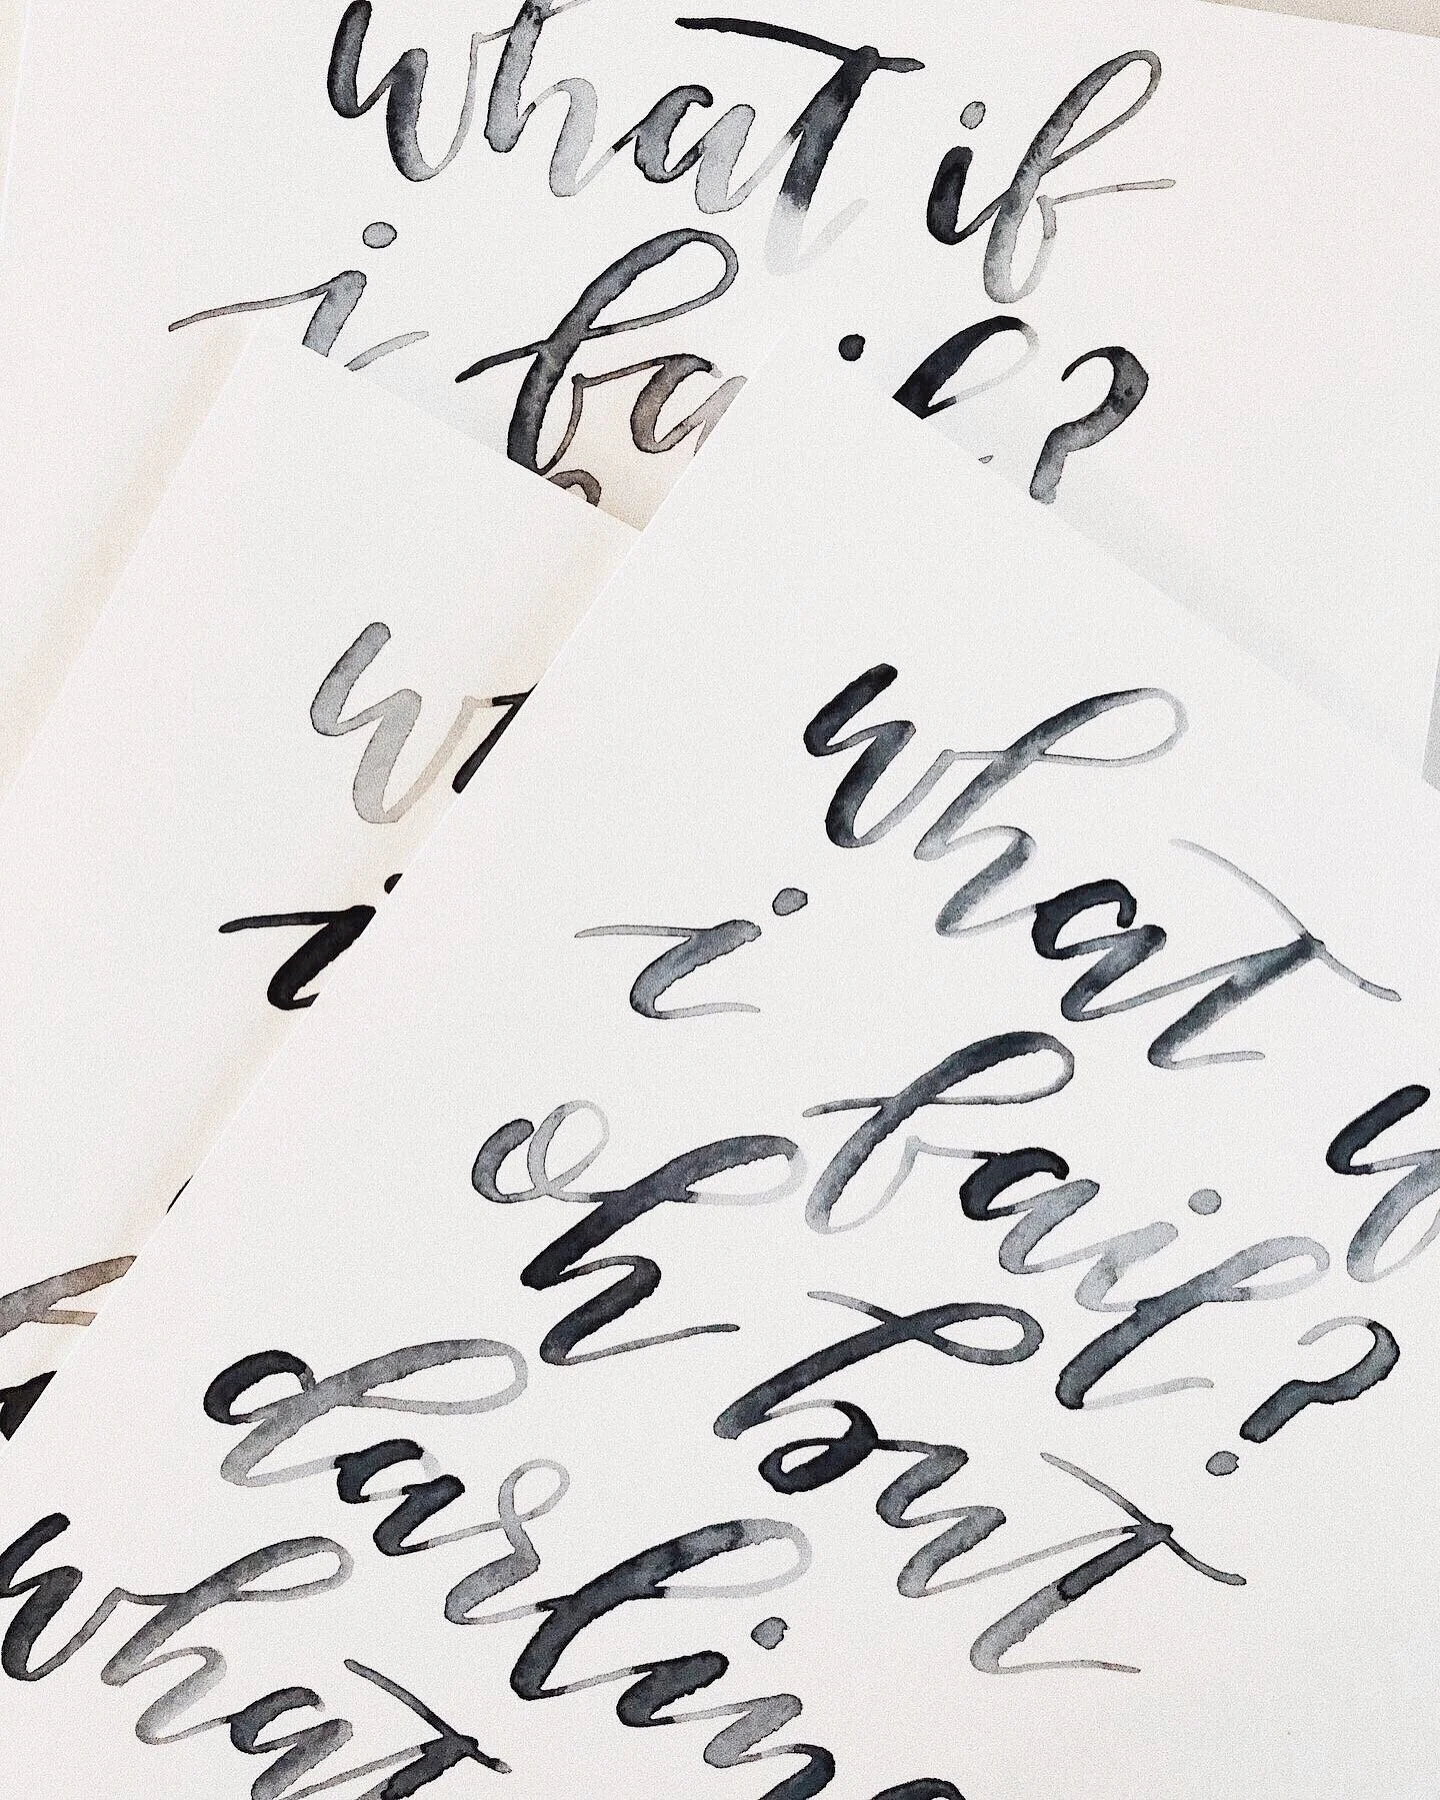 what if
i fa ?
w
i
what
i fail?
oh but
darlin
what